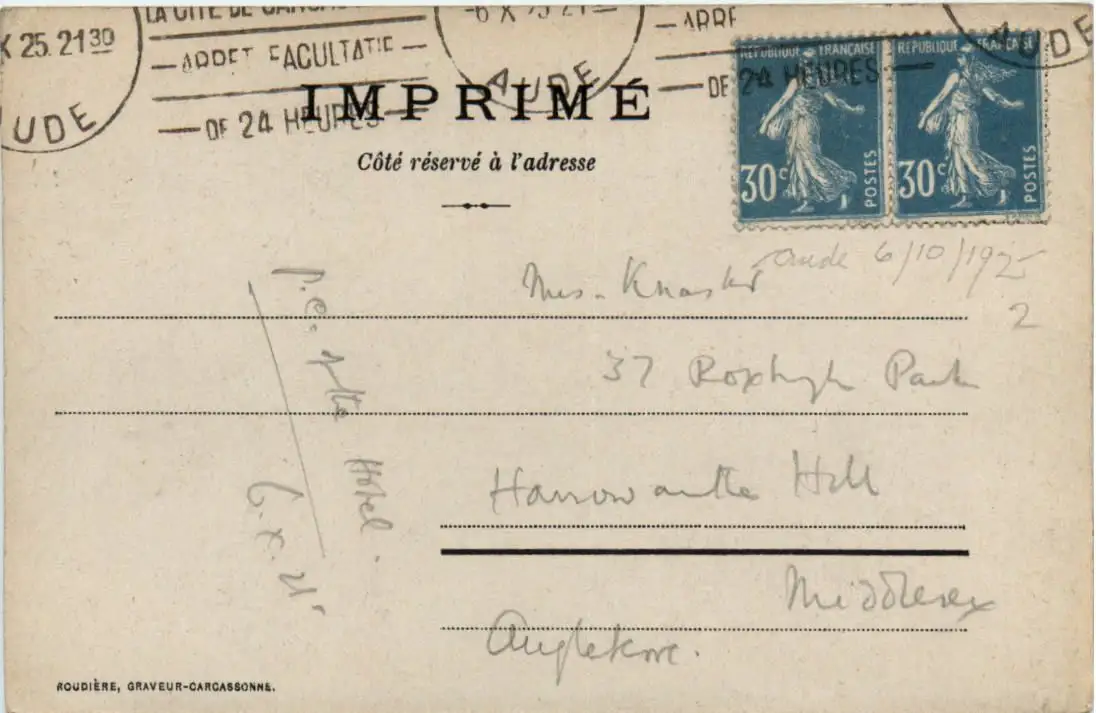 LA CITÉ DE
X 25. 21 30
-6 X 25 21
— ARRET FACULTATIF —
— ARRE
UDE
AUDE
AUDE
— DE 24 HEURES —
— DE 24 HEURES —
REPUBLIQUE FRANÇAISE
REPUBLIQUE FRANÇAISE
30c POSTES
30c POSTES
IMPRIMÉ
Côté réservé à l'adresse
Aude 6/10/192
2
Mrs.
37 Park
Harrow on the Hill
Middlesex
Angleterre.
P.C. of the Hotel.
6.X.
ROUDIÈRE, GRAVEUR-CARCASSONNE.